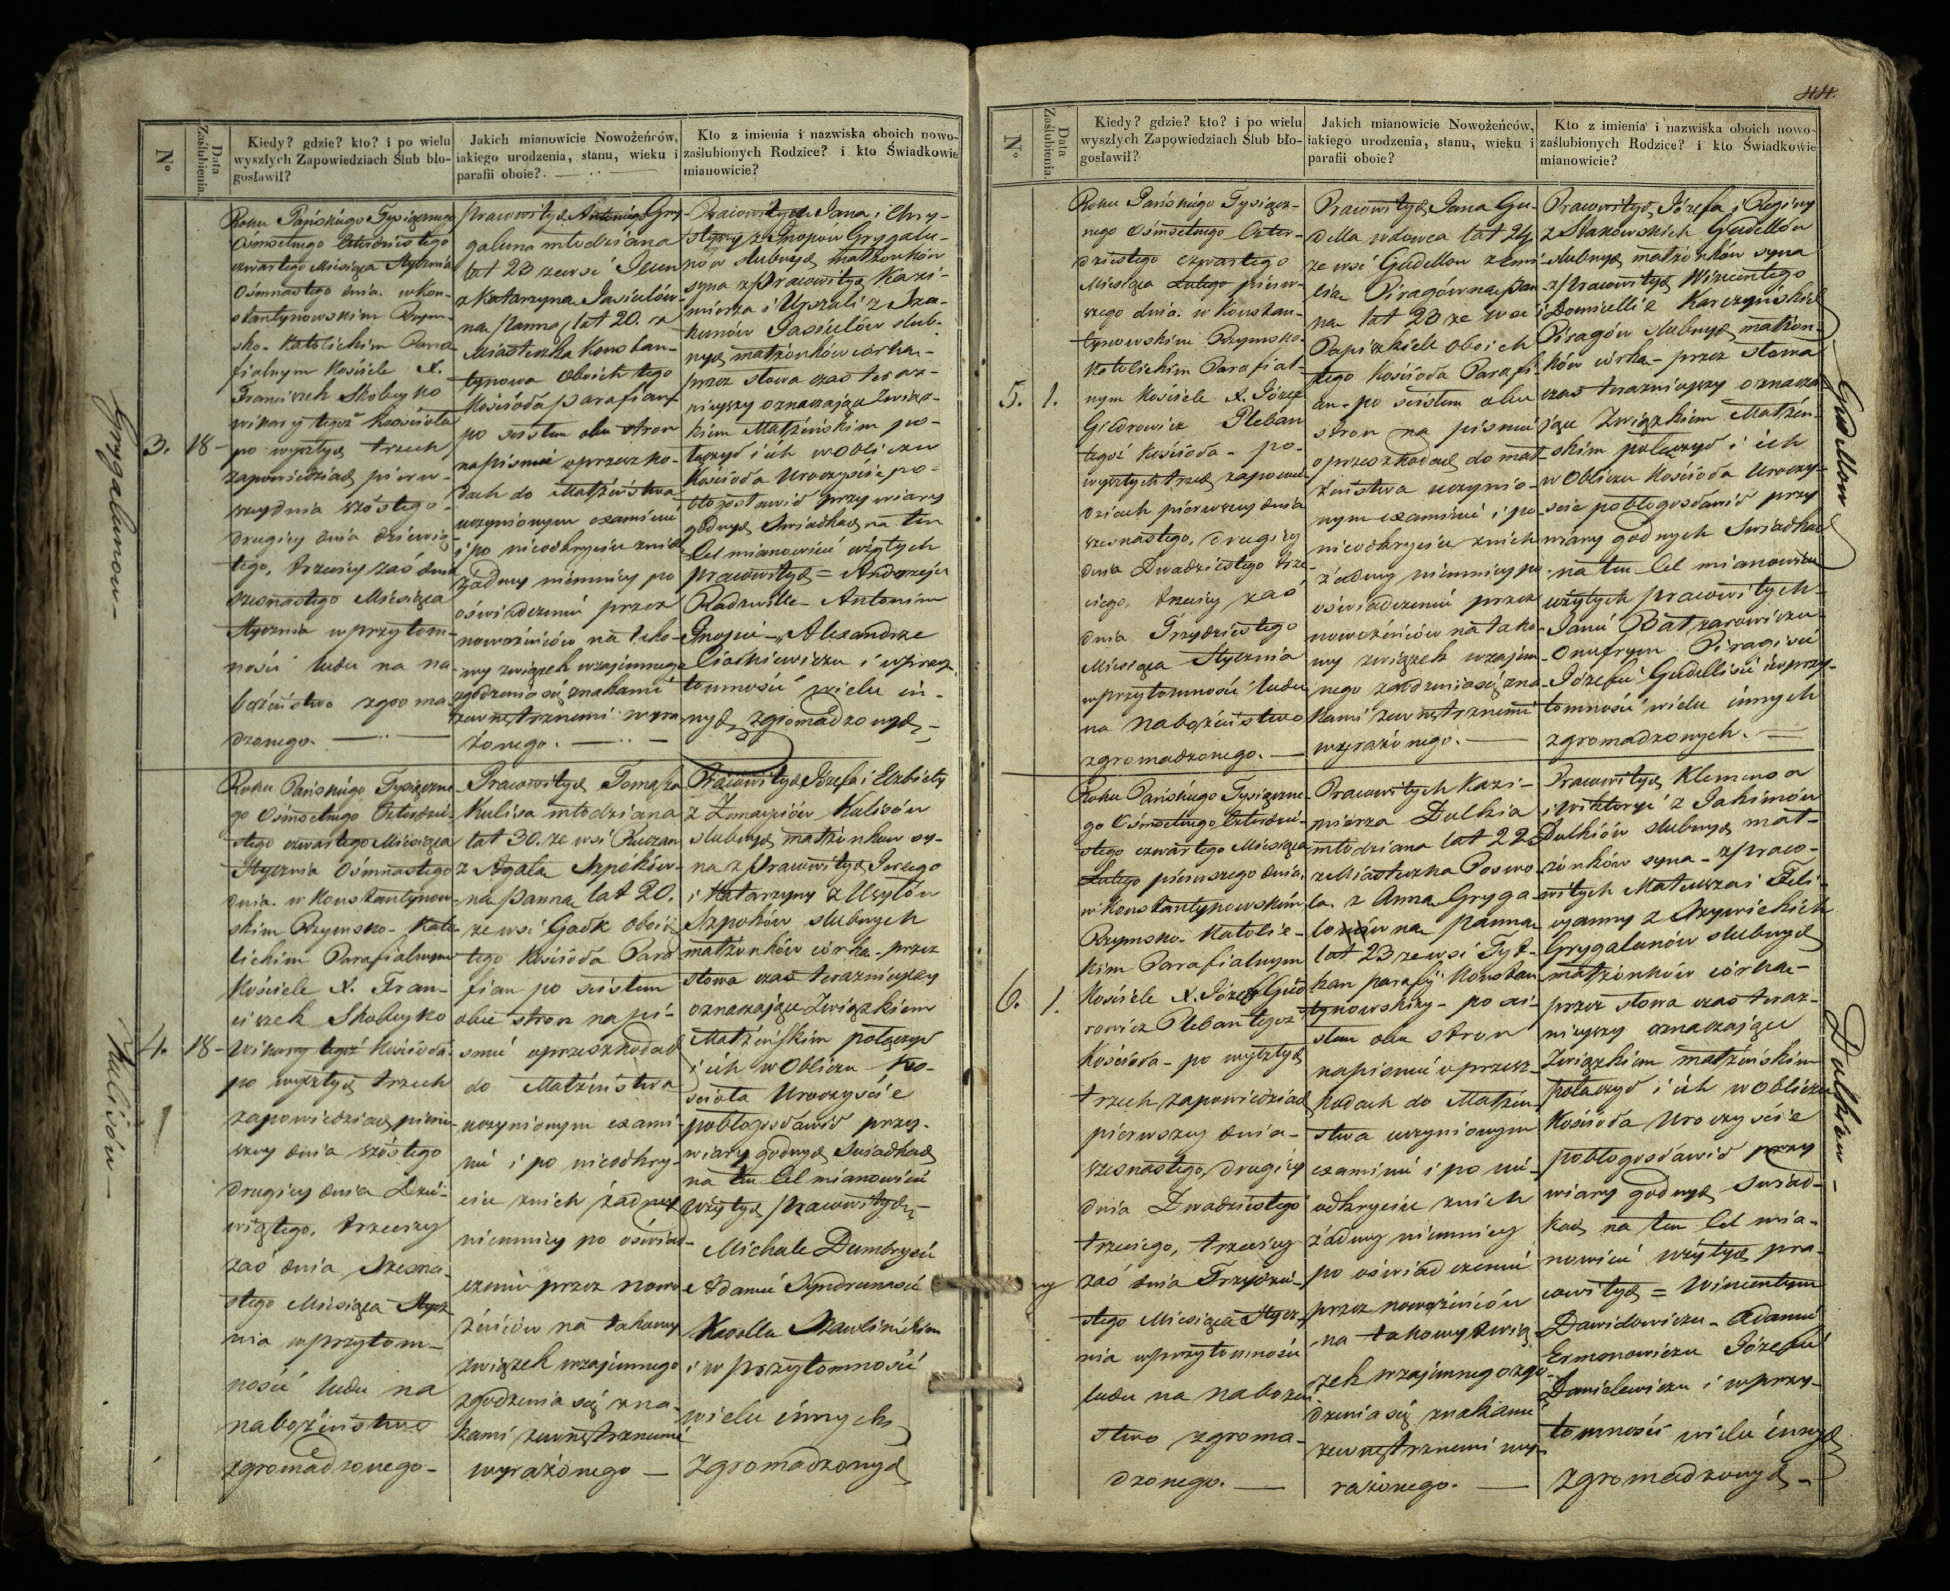 N°
Data Zaślubienia.
Kiedy? gdzie? kto? i po wielu
wyszłych Zapowiedziach Ślub bło-
gosławił?
Jakich mianowicie Nowożeńców,
iakiego urodzenia, stanu, wieku i
parafii oboie?
Kto z imienia i nazwiska oboich nowo-
zaślubionych Rodzice? i kto Świadkowie
mianowicie?
Grygalunow
3.
18
Roku Pańskiego Tysiącznego
Ośmsetnego Czterdziestego
czwartego Miesiąca Stycznia
Ośmnastego dnia. w Kon-
stantynowskim Rzym-
sko-Katolickim Para-
fialnym Kościele X.
Franciszek Skobeyko
wikary tegoż Kościoła
po wyszłych trzech
zapowiedziach pierw-
szey dnia szóstego
drugiey dnia dziewią-
tego, trzeciey zaś dnia
szesnastego Miesiąca
Stycznia w przytom-
ności ludu na na-
bożeństwo zgroma-
dzonego.
Pracowitych Antoniego Gry-
galuna młodziana
lat 23 ze wsi
z Katarzyną Jasiulów-
ną Panną, lat 20. z
Miasteczka Konstan-
tynowa oboich tego
Kościoła parafian
po ścisłem obu stron
na piśmie o przeszko-
dach do Małżeństwa
uczynionym examinie
i po nieodkryciu znich
żadney niemniey po
oświadczeniu przez
nowożeńców na tako-
wy związek wzajemnego
zgodzenia się znakami
zewnętrznemi wyra-
żonego.
Pracowitych Jana i Kry-
styny z Gnopów Grygalu-
nów ślubnych małżonków
syna z Pracowitych Kazi-
mierza i Urszuli z
Jasiulów ślub-
nych małżonków córką
przez słowa czas teraz-
nieyszy oznaczające Związ-
kiem Małżeńskim po-
łączył i ich w Obliczu
Kościoła Uroczyście po-
błogosławił przy wiary
godnych Świadkach na ten
Cel mianowicie użytych
pracowitych = Andrzeju
Radzwille Antonim
Gnopie Alexandrze
i w przy-
tomności wielu in-
nych zgromadzonych
Kulisów
4.
18
Roku Pańskiego Tysiączne-
go Ośmsetnego Czterdzie-
stego czwartego Miesiąca
Stycznia Ośmnastego
dnia. w Konstantynow-
skim Rzymsko-Kato-
lickim Parafialnym
Kościele X. Fran-
ciszek Skobeyko
Wikary tegoż Kościoła
po wyszłych trzech
zapowiedziach pierw-
szey dnia szóstego
drugiey dnia dzie-
wiątego, trzeciey
zaś dnia szesna-
stego Miesiąca Stycz-
nia w przytom-
ności ludu na
nabożeństwo
zgromadzonego
Pracowitych Tomasza
Kulisa młodziana
lat 30. ze wsi
z Agatą Szpoków-
ną Panną lat 20.
ze wsi Gask oboich
tego Kościoła Para-
fian po ścisłem
obu stron na pi-
śmie o przeszkodach
do Małżeństwa
uczynionym exami-
nie i po nieodkry-
ciu znich żadney
niemniey po oświad-
czeniu przez nowo-
żeńców na takowy
związek wzajemnego
zgodzenia się zna-
kami zewnętrznemi
wyrażonego
Pracowitych Józefa i Elżbiety
z Kulisów
ślubnych małżonków sy-
na z Pracowitych Jerzego
i Katarzyny z
Szpoków ślubnych
małżonków córką przez
słowa czas teraznieyszy
oznaczające Związkiem
Małżeńskim połączył
i ich w Obliczu Ko-
ścioła Uroczyście
pobłogosławił przy
wiary godnych Świadkach
na ten Cel mianowicie
użytych pracowitych
Michale Dumbrysie
Adamie
i w przytomności
wielu innych
zgromadzonych
44.
N°
Data Zaślubienia.
Kiedy? gdzie? kto? i po wielu
wyszłych Zapowiedziach Ślub bło-
gosławił?
Jakich mianowicie Nowożeńców,
iakiego urodzenia, stanu, wieku i
parafii oboie?
Kto z imienia i nazwiska oboich nowo-
zaślubionych Rodzice? i kto Świadkowie
mianowicie?
5.
1.
Roku Pańskiego Tysiącz-
nego Ośmsetnego Czter-
dziestego czwartego
Miesiąca Lutego pierw-
szego dnia. w Konstan-
tynowskim Rzymsko-
Katolickim Parafial-
nym Kościele X. Józef
Giedrowicz Pleban
tegoż Kościoła po-
wyszłych trzech zapowie-
dziach pierwszey dnia
szesnastego, drugiey
dnia Dwadziestego trze-
ciego, trzeciey zaś
dnia Trzydziestego
Miesiąca Stycznia
w przytomności ludu
na nabożeństwo
zgromadzonego.
Pracowitych Jana Gu-
della wdowca lat 24
ze wsi Gudellow z Emi-
lią Piragówną Pan-
ną lat 23 ze wsi
Papiszkiele oboich
tego Kościoła Parafi-
an po ścisłem obu
stron na piśmie
o przeszkodach do mał-
żeństwa uczynio-
nym examinie i po
nieodkryciu znich
żadney niemniey po
oświadczeniu przez
nowożeńców na tako-
wy związek wzajem-
nego zgodzenia się zna-
kami zewnętrznemi
wyrażonego.
Pracowitych Józefa i Reginy
z Stakowskich Gudellów
ślubnych małżonków syna
z Pracowitych Wincentego
i Domicelli z Karczewskich
Piragów ślubnych małżon-
ków córką przez słowa
czas teraznieyszy oznacza-
jące Związkiem Małżeń-
skim połączył i ich
w Obliczu Kościoła Uroczy-
ście pobłogosławił przy
wiary godnych Świadkach
na ten Cel mianowicie
użytych pracowitych
Janie Bałzarowiczu
Onufrym Piragisie
Józefie Gudellisie i w przy-
tomności wielu innych
zgromadzonych.
Gudellow
6.
1.
Roku Pańskiego Tysiączne-
go Ośmsetnego Czterdzie-
stego czwartego Miesiąca
Lutego pierwszego dnia,
w Konstantynowskim
Rzymsko-Katolic-
kim Parafialnym
Kościele X. Józef Gied-
rowicz Pleban tegoż
Kościoła po wyszłych
trzech zapowiedziach
pierwszey dnia
szesnastego, drugiey
dnia Dwadziestego
trzeciego, trzeciey
zaś dnia Trzydzie-
stego Miesiąca Stycz-
nia w przytomności
ludu na nabożeń-
stwo zgroma-
dzonego.
Pracowitych Kazi-
mierza Dulkia
młodziana lat 22
ze Miasteczka
z Anną Gryga-
lunówną Panną
lat 23 ze wsi
parafij Konstan-
tynowskiey po ści-
słem obu stron
na piśmie o przesz-
kodach do Małżeń-
stwa uczynionym
examinie i po nie-
odkryciu znich
żadney niemniey
po oświadczeniu
przez nowożeńców
na takowy zwią-
zek wzajemnego zgo-
dzenia się znakami
zewnętrznemi wy-
rażonego.
Pracowitych Klemensa
i Wiktoryi z Jakimów
Dulkiów ślubnych mał-
żonków syna z praco-
witych Mateusza i Feli-
cyanny z
Grygalunów ślubnych
małżonków córką
przez słowa czas teraz-
nieyszy oznaczające
Związkiem małżeńskim
połączył i ich w Obliczu
Kościoła Uroczyście
pobłogosławił przy
wiary godnych Świad-
kach na ten Cel mia-
nowicie użytych pra-
cowitych = Wincentym
Dawidowiczu Adamie
Ermonowiczu Józefie
Danielewiczu i w przy-
tomności wielu innych
zgromadzonych
Dulkiow